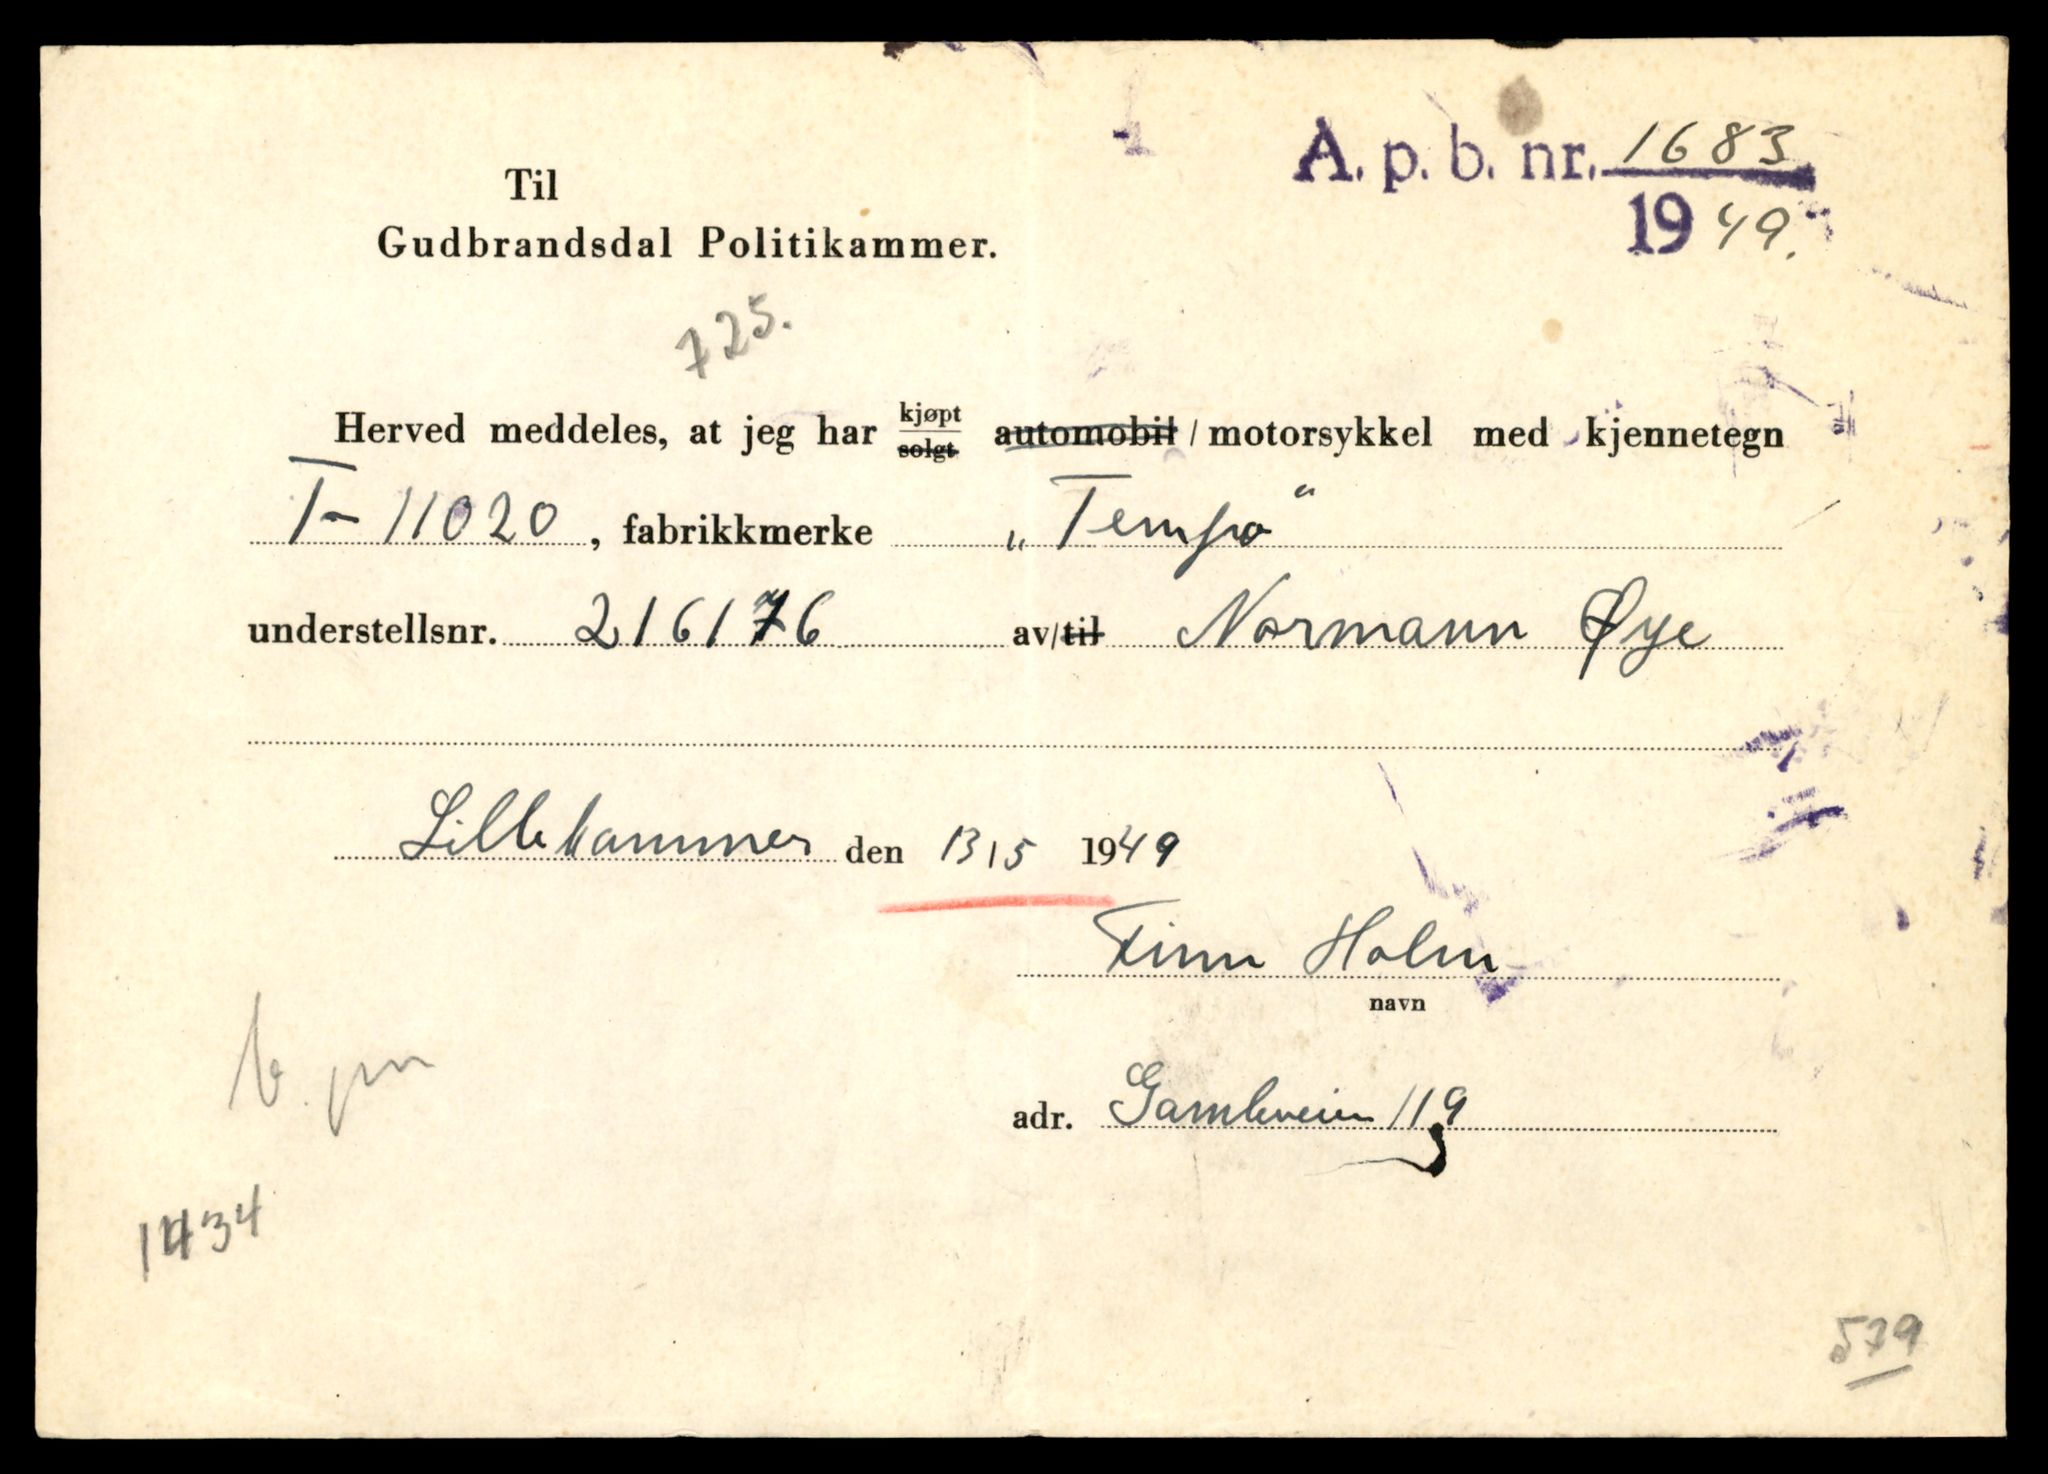 A. p. b. nr. 1683
1949.
Til
Gudbrandsdal Politikammer.
725.
Herved meddeles, at jeg har kjøpt solgt automobil / motorsykkel med kjennetegn
T-11020, fabrikkmerke „Tempo“
understellsnr. 216176 av/til Normann Øye
Lillehammer den 13/5 1949
Finn Holm
navn
adr. Gamleveien 119
1434
579